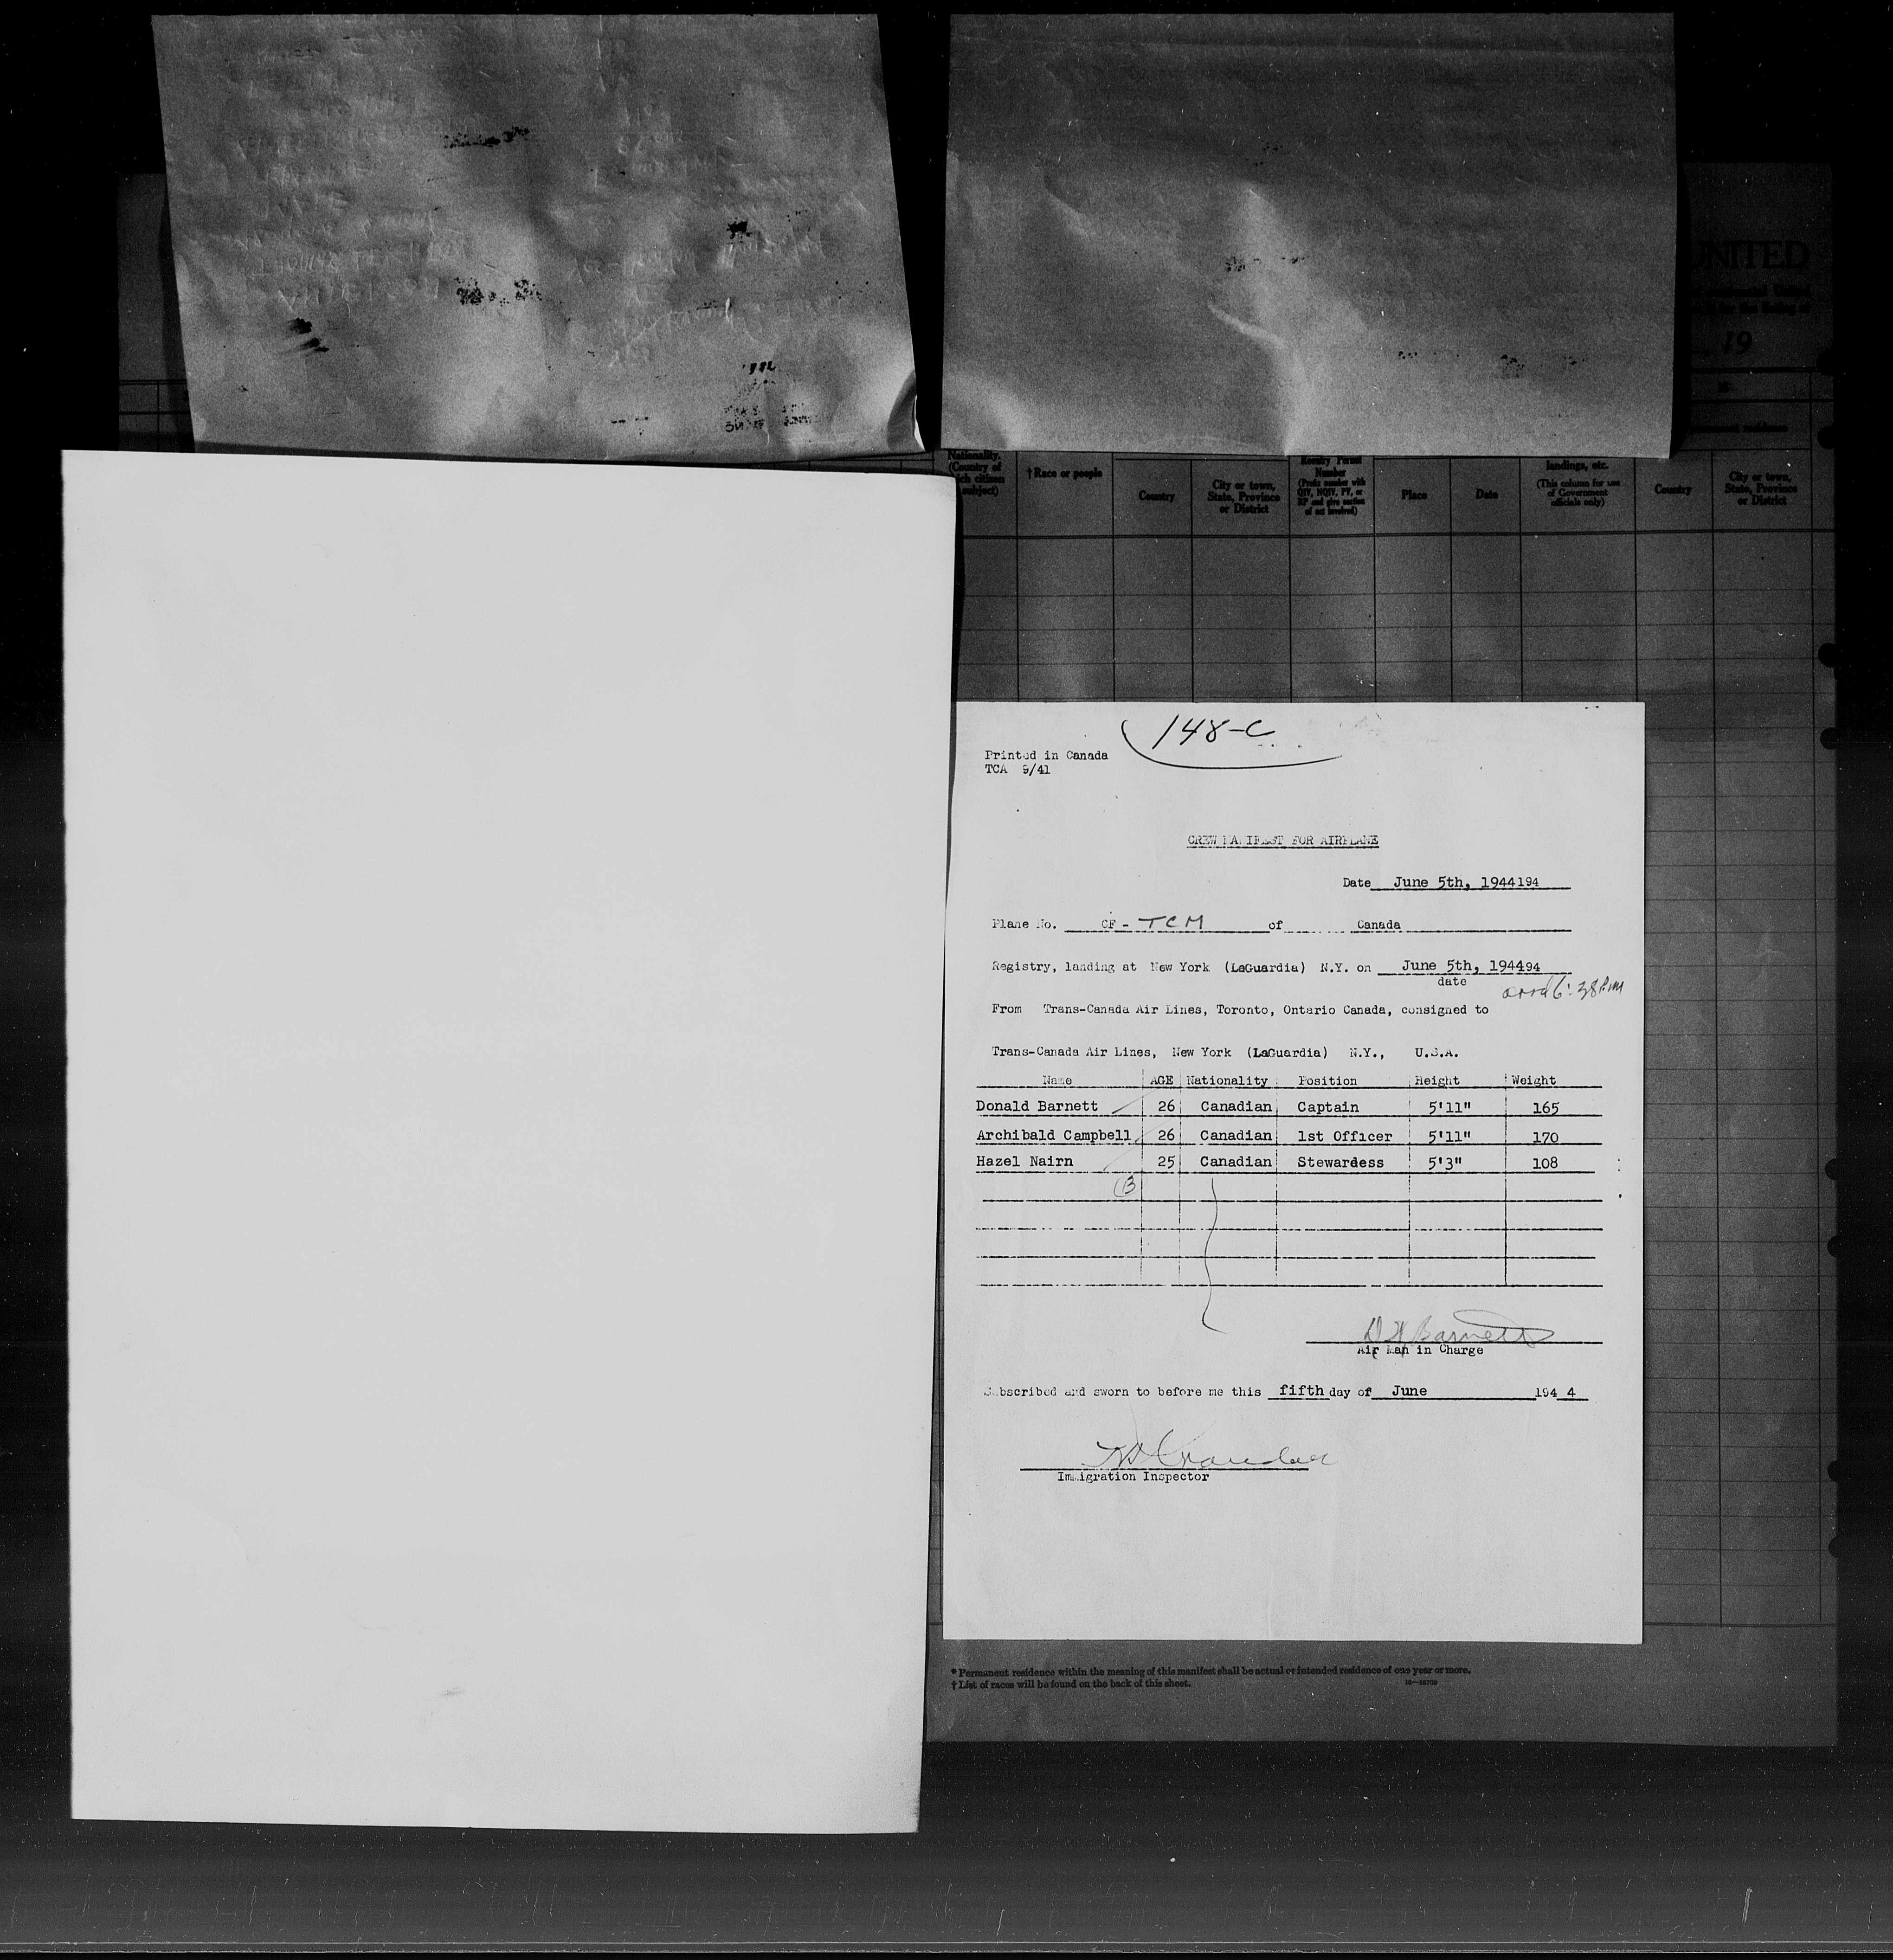 UNITED
19
Nationality.
(Country of
which citizen
or subject)
†Race or people
Country
City or town,
State, Province
or District
Reentry Permit
Number
(Prefix number with
QIV, NQIV, PV, or
RP and give section
of act involved)
Place
Date
landings, etc.
(This column for use
of Government
officials only)
Country
City or town,
State, Province
or District
148-C
Printed in Canada
TCA 9/41
CREW MANIFEST FOR AIRPLANE
Date June 5th, 1944194
Plane No. CF - TCM of Canada
Registry, landing at New York (LaGuardia) N.Y. on June 5th, 194494
date
arrd 6:38 P.M
From Trans-Canada Air Lines, Toronto, Ontario Canada, consigned to
Trans-Canada Air Lines, New York (LaGuardia) N.Y., U.S.A.
Name AGE Nationality Position Height Weight
Donald Barnett 26 Canadian Captain 5'11" 165
Archibald Campbell 26 Canadian 1st Officer 5'11" 170
Hazel Nairn 25 Canadian Stewardess 5'3" 108
3
Barnett
Air Man in Charge
Subscribed and sworn to before me this fifth day of June 194 4
Immigration Inspector
* Permanent residence within the meaning of this manifest shall be actual or intended residence of one year or more.
† List of races will be found on the back of this sheet.